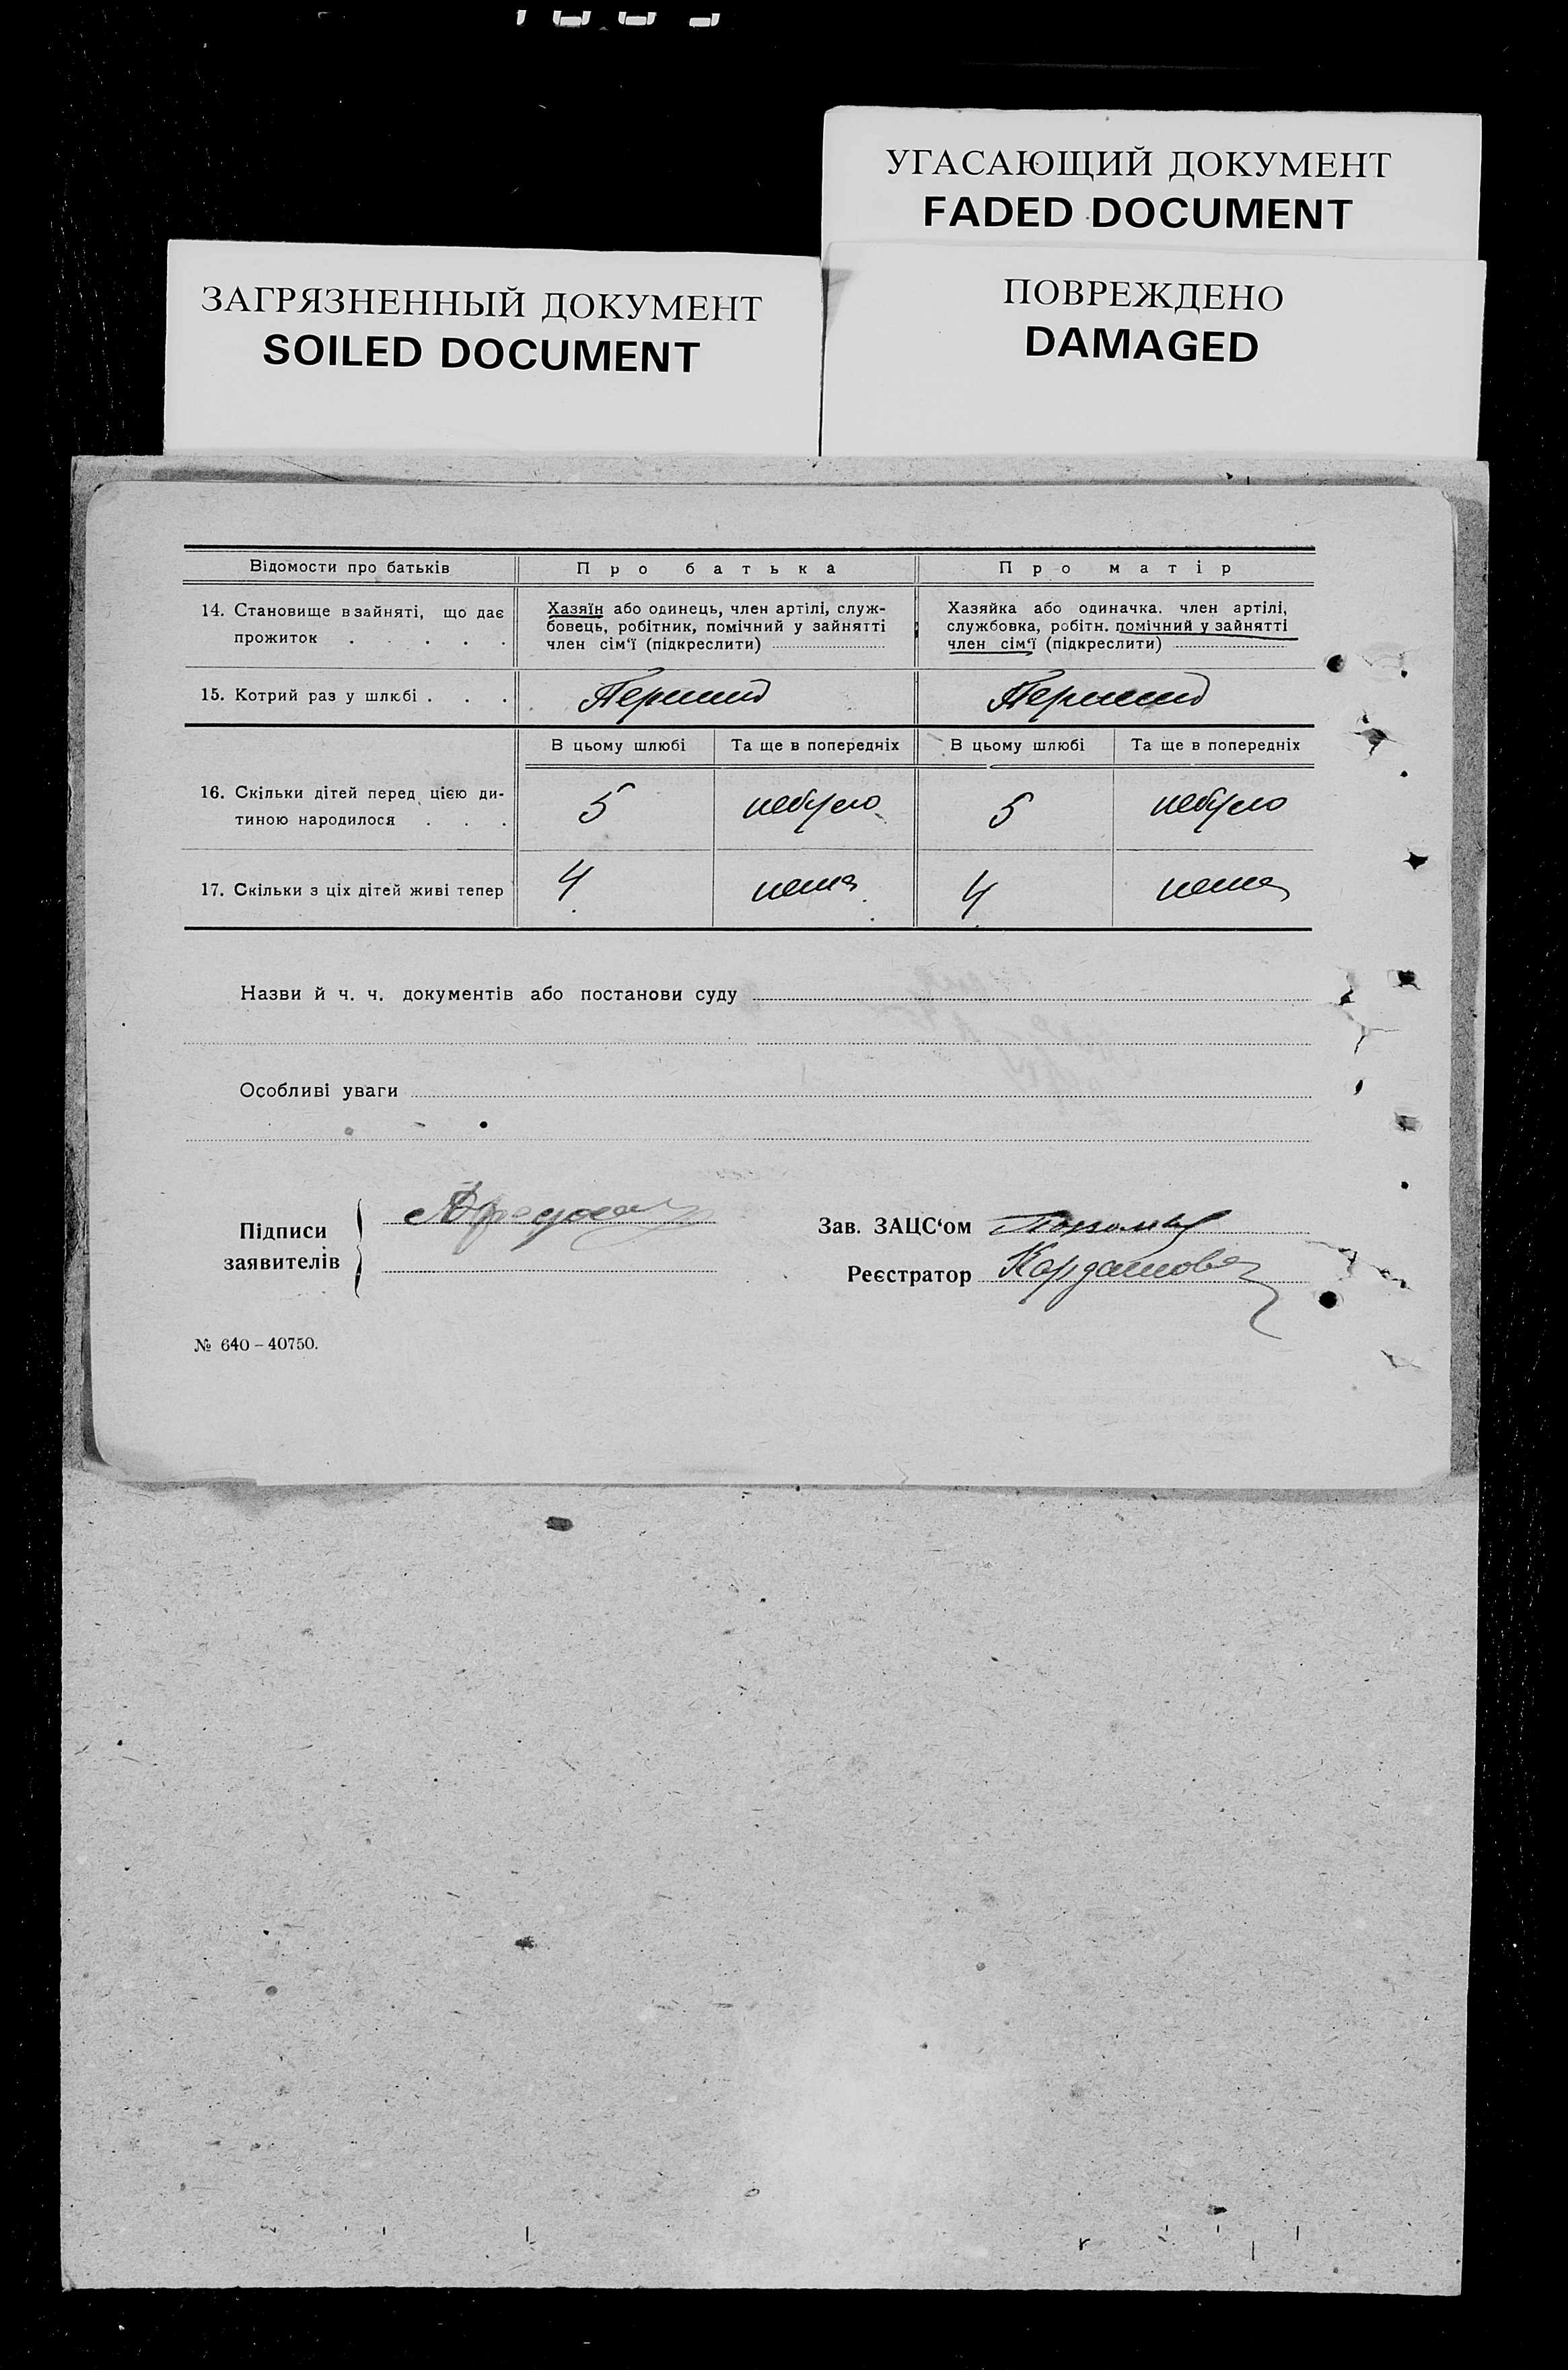 УГАСАЮЩИЙ ДОКУМЕНТ
FADED DOCUMENT
ЗАГРЯЗНЕННЫЙ ДОКУМЕНТ
SOILED DOCUMENT
ПОВРЕЖДЕНО
DAMAGED
Відомости про батьків Про батька Про матір
14. Становище в зайняті, що дає прожиток . . . . .
Хазяїн або одинець, член артілі, служ-
бовець, робітник, помічний у зайнятті
член сім‘ї (підкреслити)
Хазяйка або одиначка. член артілі,
службовка, робітн. помічний у зайнятті
член сім‘ї (підкреслити)
15. Котрий раз у шлюбі . . . Перший Перший
В цьому шлюбі Та ще в попередніх В цьому шлюбі Та ще в попередніх
16. Скільки дітей перед цією ди-
тиною народилося . . . 5 небуло 5 небуло
17. Скільки з ціх дітей живі тепер 4 нема 4 нема
Назви й ч. ч. документів або постанови суду
Особливі уваги
Підписи
заявителів
Зав. ЗАЦС‘ом
Реєстратор Кардашова
№ 640 – 40750.